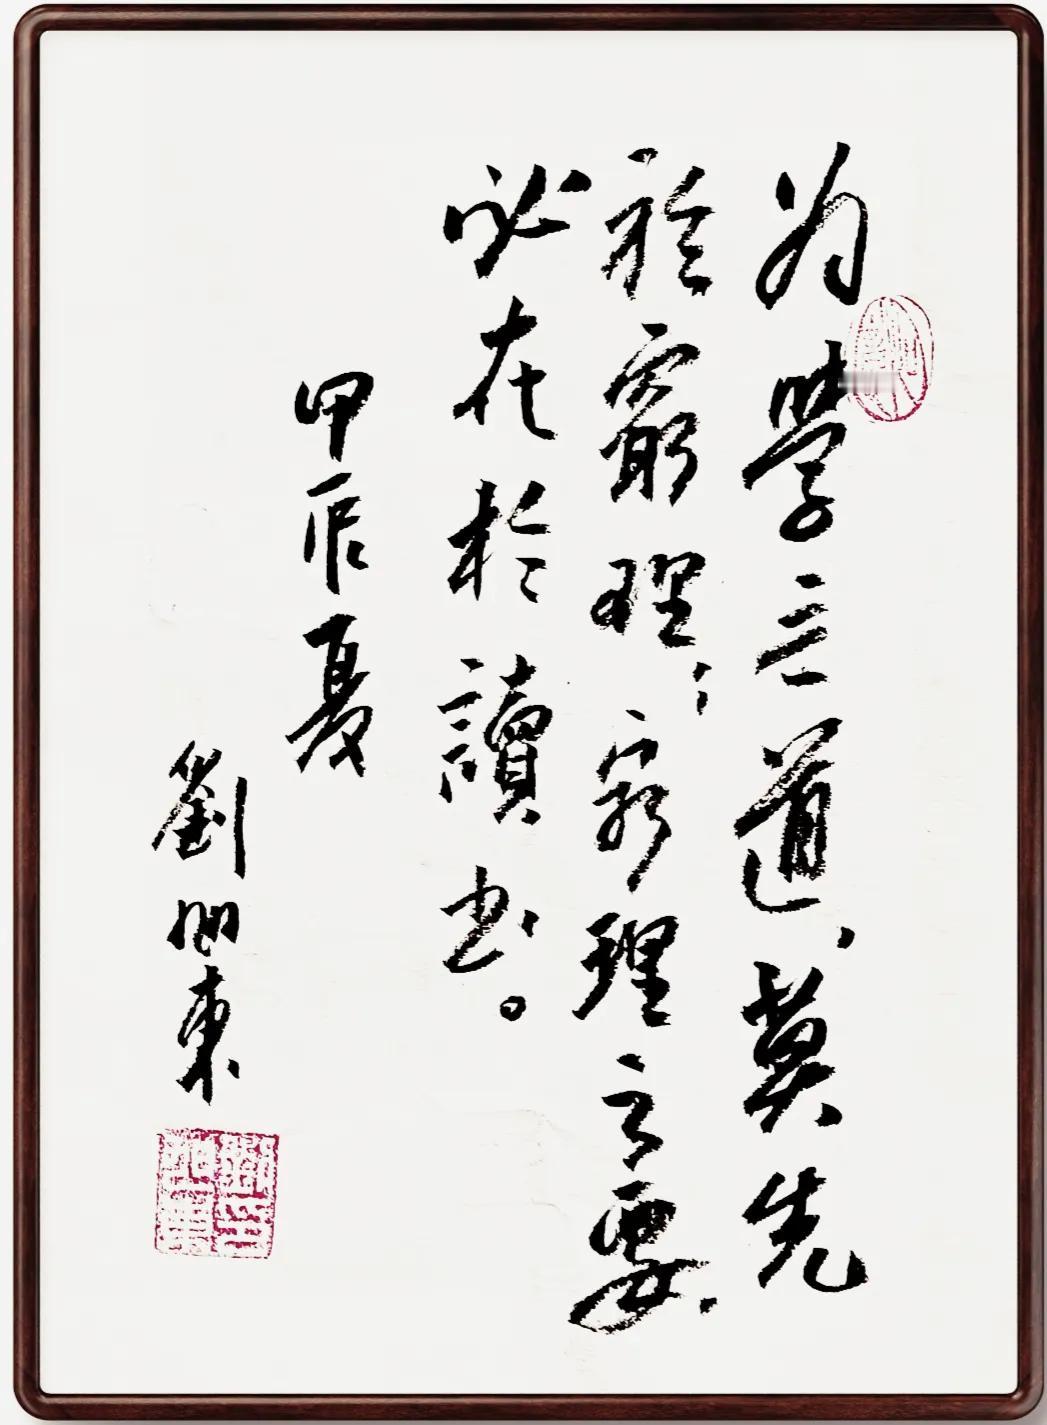 为學之道、莫先
於窮理；穷理之要、
必在於讀书。
甲辰夏
劉旭東